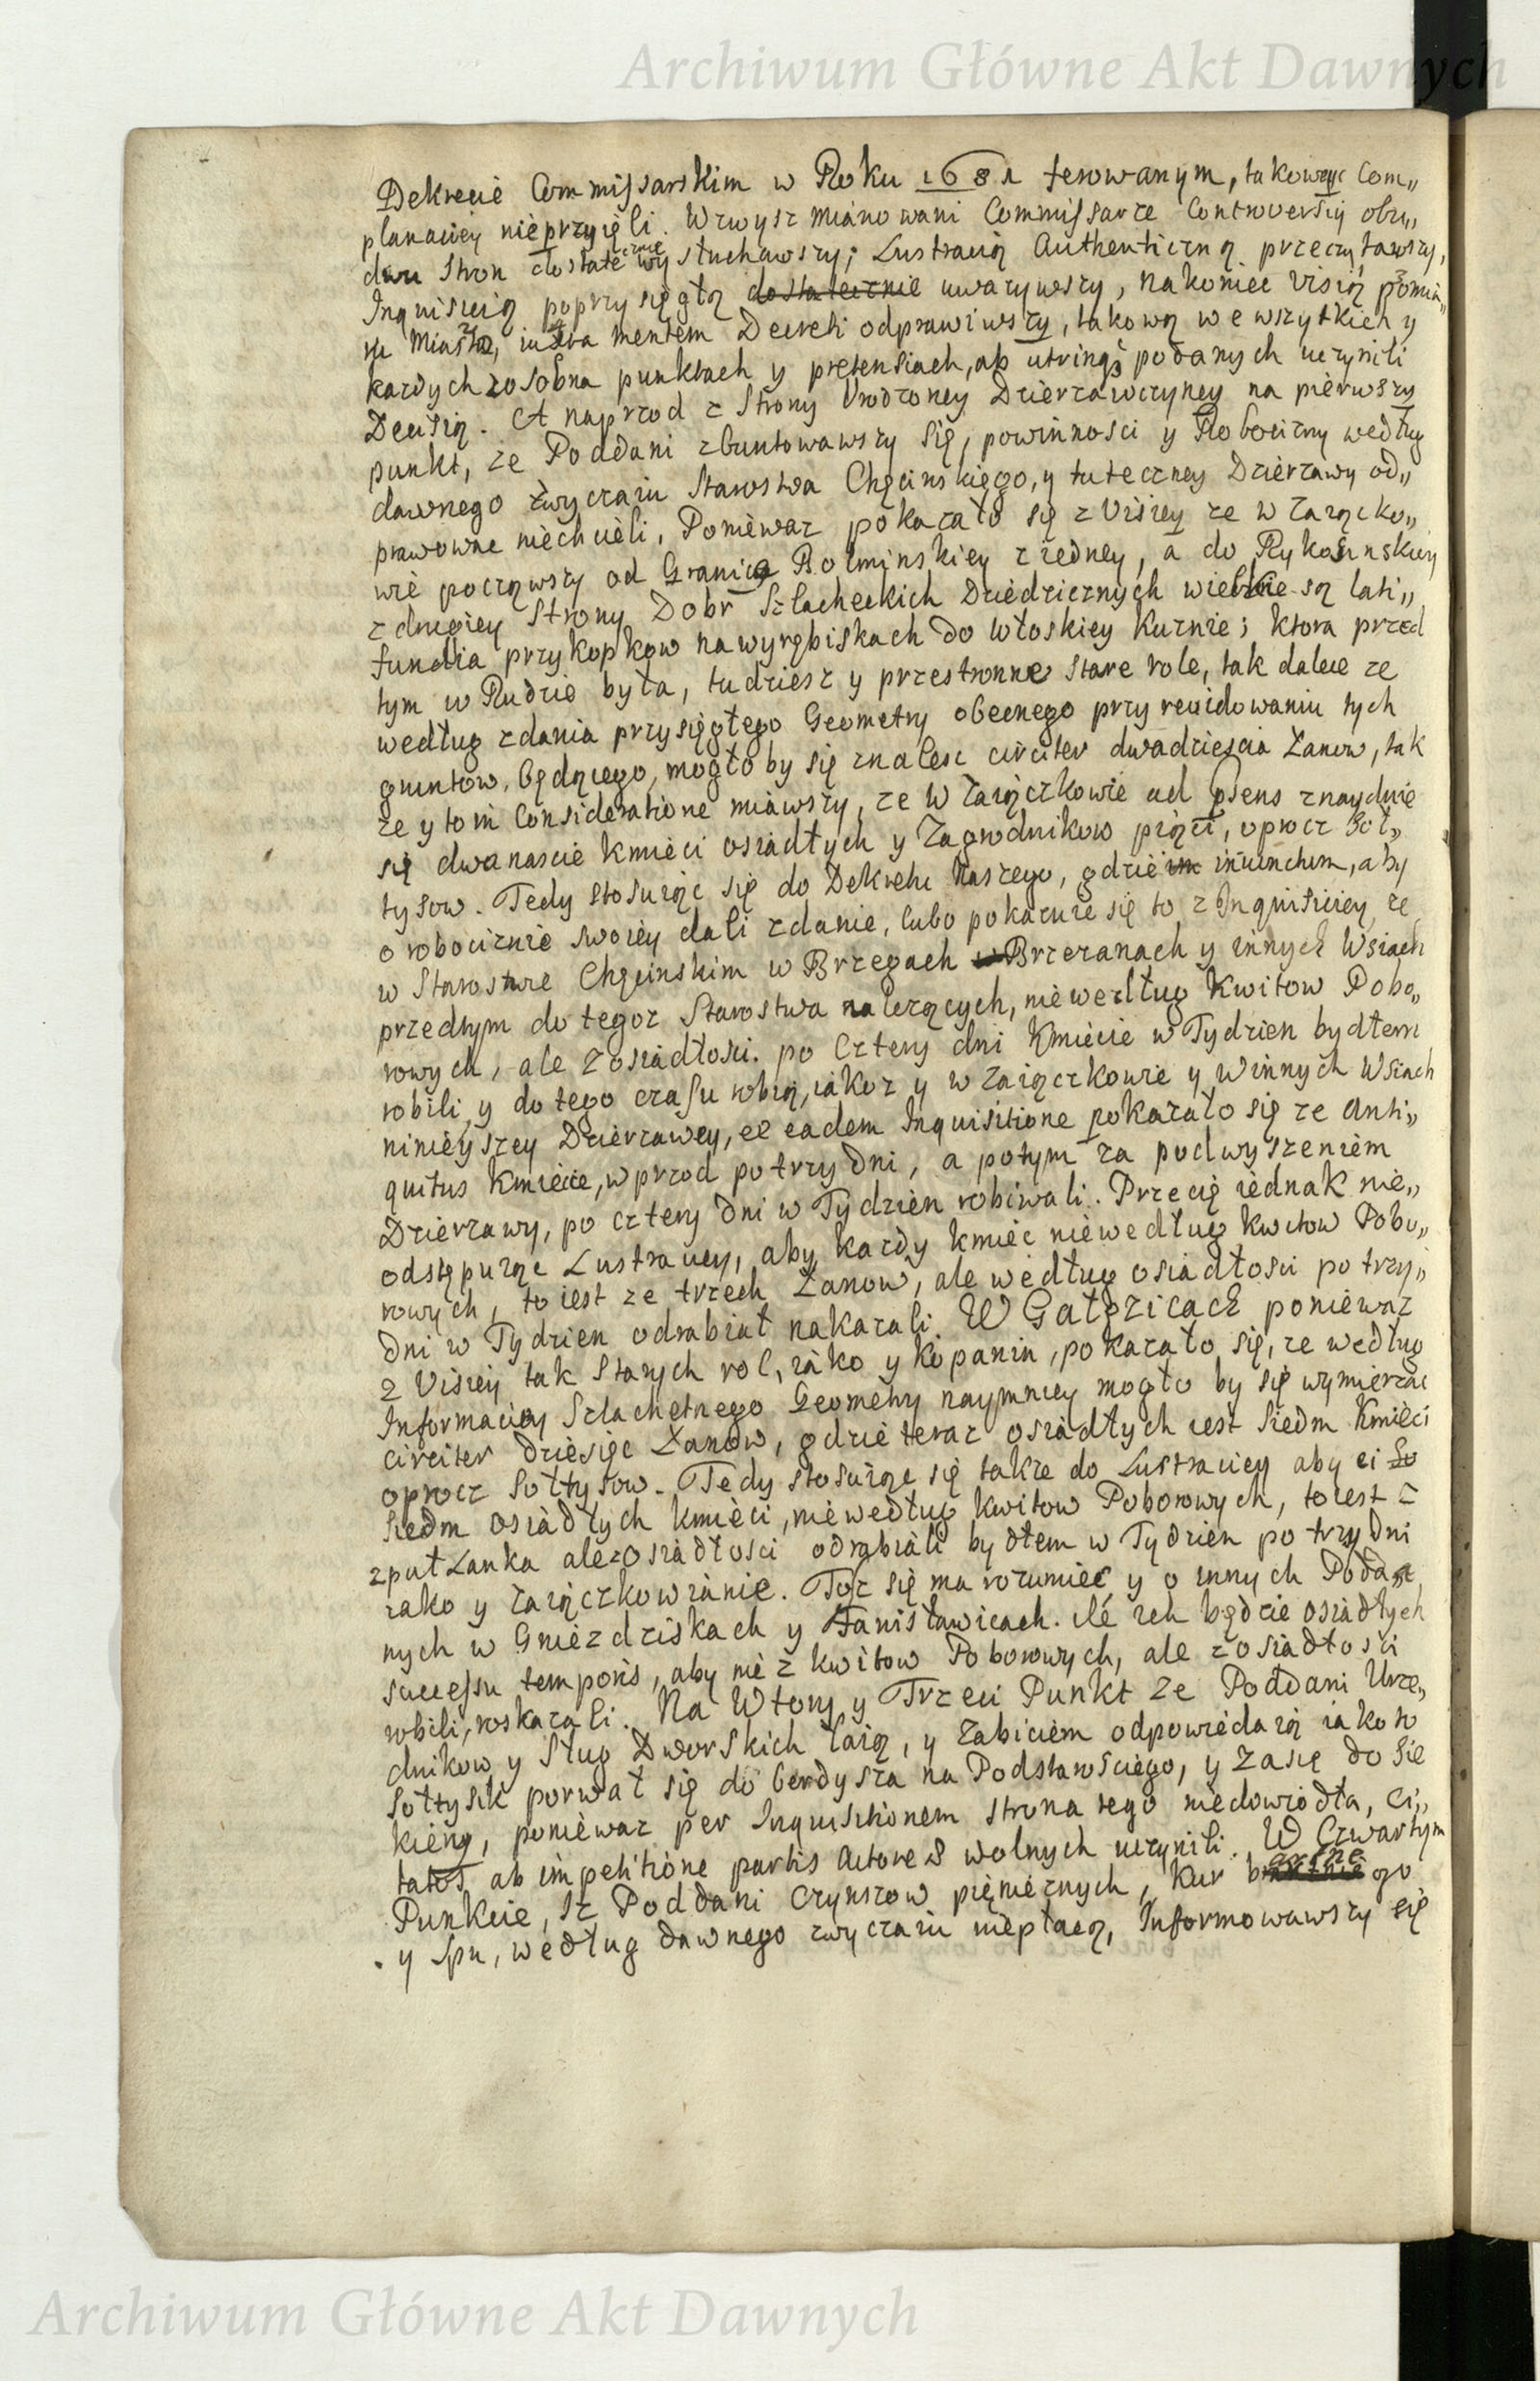 Archiwum Główne Akt Dawnych
Dekrecie Commissarskim w Roku 1681 ferowanym, takowyc Com„
planaciey nieprzyięli. Wzwysz mianowani Commissarze Controversiy obu„
dwu Stron dostatecznie wysłuchawszy; Lustracią Authenticzną przeczytawszy,
Inquisicią poprzysięgłą dostatecznie uwazywszy, nakoniec Visią
Miasta, iuxta mentem Decreti odprawiwszy, takową we wszytkich y
kazdych zosobna punktach y pretensiach, ab utrinq podanych uczynili
Decisią. A naprzod z Strony Urodzoney Dzierzawczyney na pierwszy
punkt, ze Poddani zbuntowawszy się, powinnosci y Robocizny według
dawnego zwyczaiu Starostwa Chęcinskiego, y tuteczney Dzierzawy od„
prawowac niechcieli, Poniewaz pokazało się z Visiey ze w Zaiącko„
wie począwszy od Granice Bolminskiey z iedney, a do Rykosinskiey
z drugiey Strony Dobr Szlacheckich Dziedzicznych wielkie są lati„
fundia przykopkow na wyrębiskach do Włoskiey Kuznie; ktora przed
tym w Rudzie była, tudziesz y przestronne stare role, tak dalece ze
według zdania przysięgłego Geometry obecnego przy rewidowaniu tych
gruntow, będącego, mogłoby się znalesc circiter dwadziescia Łanow, tak
ze y to in Consideratione miawszy, ze w Zaiączkowie ad psens znayduie
się dwanascie kmieci osiadłych y Zagrodnikow pięci, oprocz Soł„
tysow. Tedy stosuiąc się do Dekretu naszego, gdzie iniunctum, aby
o robociznie swoiey dali zdanie, lubo pokazuie się to z Inquisiciey ze
w Starostwie Chęcinskim w Brzegach w Brzezanach y innych Wsiach
przedtym do tegoz Starostwa nalezących, niewedług Kwitow Pobo„
rowych, ale z osiadłosci. po Cztery dni Kmiecie w Tydzien bydłem
robili, y do tego czasu robią, iakoz y w Zaiączkowie y w innych Wsiach
ninieyszey Dzierzawey, ex eadem Inquisitione pokazało się ze anti„
quitus kmiecie, wprzod po trzy dni, a potym za podwyszeniem
Dzierzawy, po cztery dni w Tydzien robiwali. Przecię iednak nie„
odstępuiąc Lustraciey, aby kazdy kmiec niewedług kwitow Pobo„
rowych, to iest ze trzech Łanow, ale według osiadłosci po trzy„
dni w Tydzien odrabiał nakazali. W Gałęzicach poniewaz
z Visiey tak Starych rol, iako y kopanin, pokazało się, ze według
Informaciey Szlachetnego Geometry naymniey mogło by się wymierzac
circiter dziesięc Łanow, gdzie teraz osiadłych iest siedm Kmieci
oprocz Sołtysow. Tedy stosuiąc się takze do Lustraciey aby ci So
siedm osiadłych kmieci, niewedług kwitow Poborowych, to iest z
z puł Łanka ale z osiadłosci odrabiali bydłem w Tydzien po trzy dni
iako y Zaiączkowianie. Toz się ma rozumiec y o innych Podda„
nych w Gniezdziskach y Stanisławicach. ile ich będzie osiadłych
successu temporis, aby nie z kwitow Poborowych, ale z osiadłosci
robili, roskazali. Na Wtory y Trzeci Punkt ze Poddani Urze„
dnikow y Sług Dworskich łaią, y zabiciem odpowiedaią iakoto
Sołtysik porwał się do berdysza na Podstarosciego, y zasię do Sie
kiery, poniewaz per Inquisitionem strona tego niedowiodła, Ci„
tatos ab impetitione partis Actorea wolnych uczynili. W Czwartym
Punkcie, Iz Poddani Czynszow pienięznych, Kur
y Spu, według dawnego zwyczaiu niepłacą, Informowawszy się
Archiwum Główne Akt Dawnych